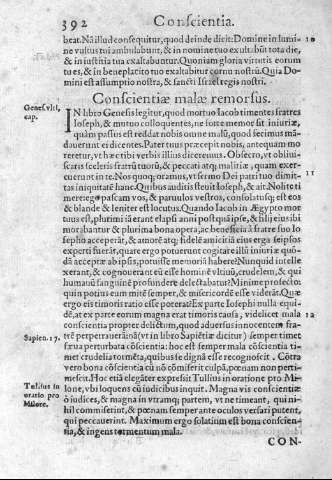 392 Conscientia.
beat. Nã illud consequitur, quod deinde dicit: Domine in lumi-
ne vultus tui ambulabunt, & in nomine tuo exult. būt tota die,
& in iustitia tua exaltabuntur. Quoniam gloria virtutis eorum
tu es, & in beneplacito tuo exaltabitur cornu nostrū. Quia Do-
mini est assumptio nostra, & sancti Israel regis nostri.
Conscientiæ malæ remorsus.
Genes. vlti,
cap.
IN libro Genesis legitur, quod mortuo Iacob timentes fratres
Ioseph, & mutuo colloquentes, ne forte memor sit iniuriæ,
quàm passus est reddat nobis omne malū, quod fecimus mã-
dauerunt ei dicentes. Pater tuus præcepit nobis, antequam mo
reretur, vt hæc tibi verbis illius diceremus. Obsecro, vt obliui-
scaris sceleris fratrū tuorū, & peccati atq; malitiæ, quam exer-
11
cuerunt in te. Nos quoq; oramus, vt seruo Dei patri tuo dimit-
tas iniquitatẽ hanc. Quibus auditis fleuit Ioseph, & ait. Nolite ti
mere: ego pascam vos, & paruulos vestros, consolatusq; est eos
& blande & leniter est locutus. Quando Iacob in Ægypto mor
tuus est, plurimi iã erant elapsi anni postquã ipse, & filij eius ibi
morabantur & plurima bona opera, ac beneficia à fratre suo Io
sepho acceperãt, & amorẽ atq; fidelẽ amicitiã eius erga se ipsos
experti fuerãt, quare ergo potuerunt cogitare illū iniuriæ quõ-
dã acceptæ ab ipsis, potuisse memoriã habere? Nunquid intelle
xerant, & cognouerant eū esse hominẽ vltiuū, crudelem, & qui
humanū sanguinẽ profundere delectabatur? Minime profecto:
quin potius eum mitẽ semper, & misericordẽ esse viderãt. Quæ
ergo eis timoris ratio esse poterat? Ex parte Iosephi nulla equi-
dẽ, at ex parte eorum magna erat timoris causa, videlicet mala
12
conscientia propter delictum, quod aduersus innocentem fra-
Sapien. 17.
trẽ perpetrauerãt nã (vt in libro Sapiẽtiæ dicitur) semper timet
sæua perturbata cõscientia: hoc est semper mala cõscientia ti-
met crudelia tormẽta, quibus se dignã esse recognoscit. Cõtra
vero bona cõscientia cū nõ cõmiserit culpã, pœnam non perti-
mescit. Hoc etiã elegãter expressit Tullius in oratione pro Mi-
Tullius in
oratio pro
Milone.
lone, vbi loquens cū iudicibus inquit. Magna vis conscientiæ
ô iudices, & magna in vtramq; partem, vt ne timeant, qui ni-
hil commiserint, & pœnam semper ante oculos versari putent,
qui peccauerint. Maximum ergo solatium est bona conscien-
tia, & ingens tormentum mala.
CON-